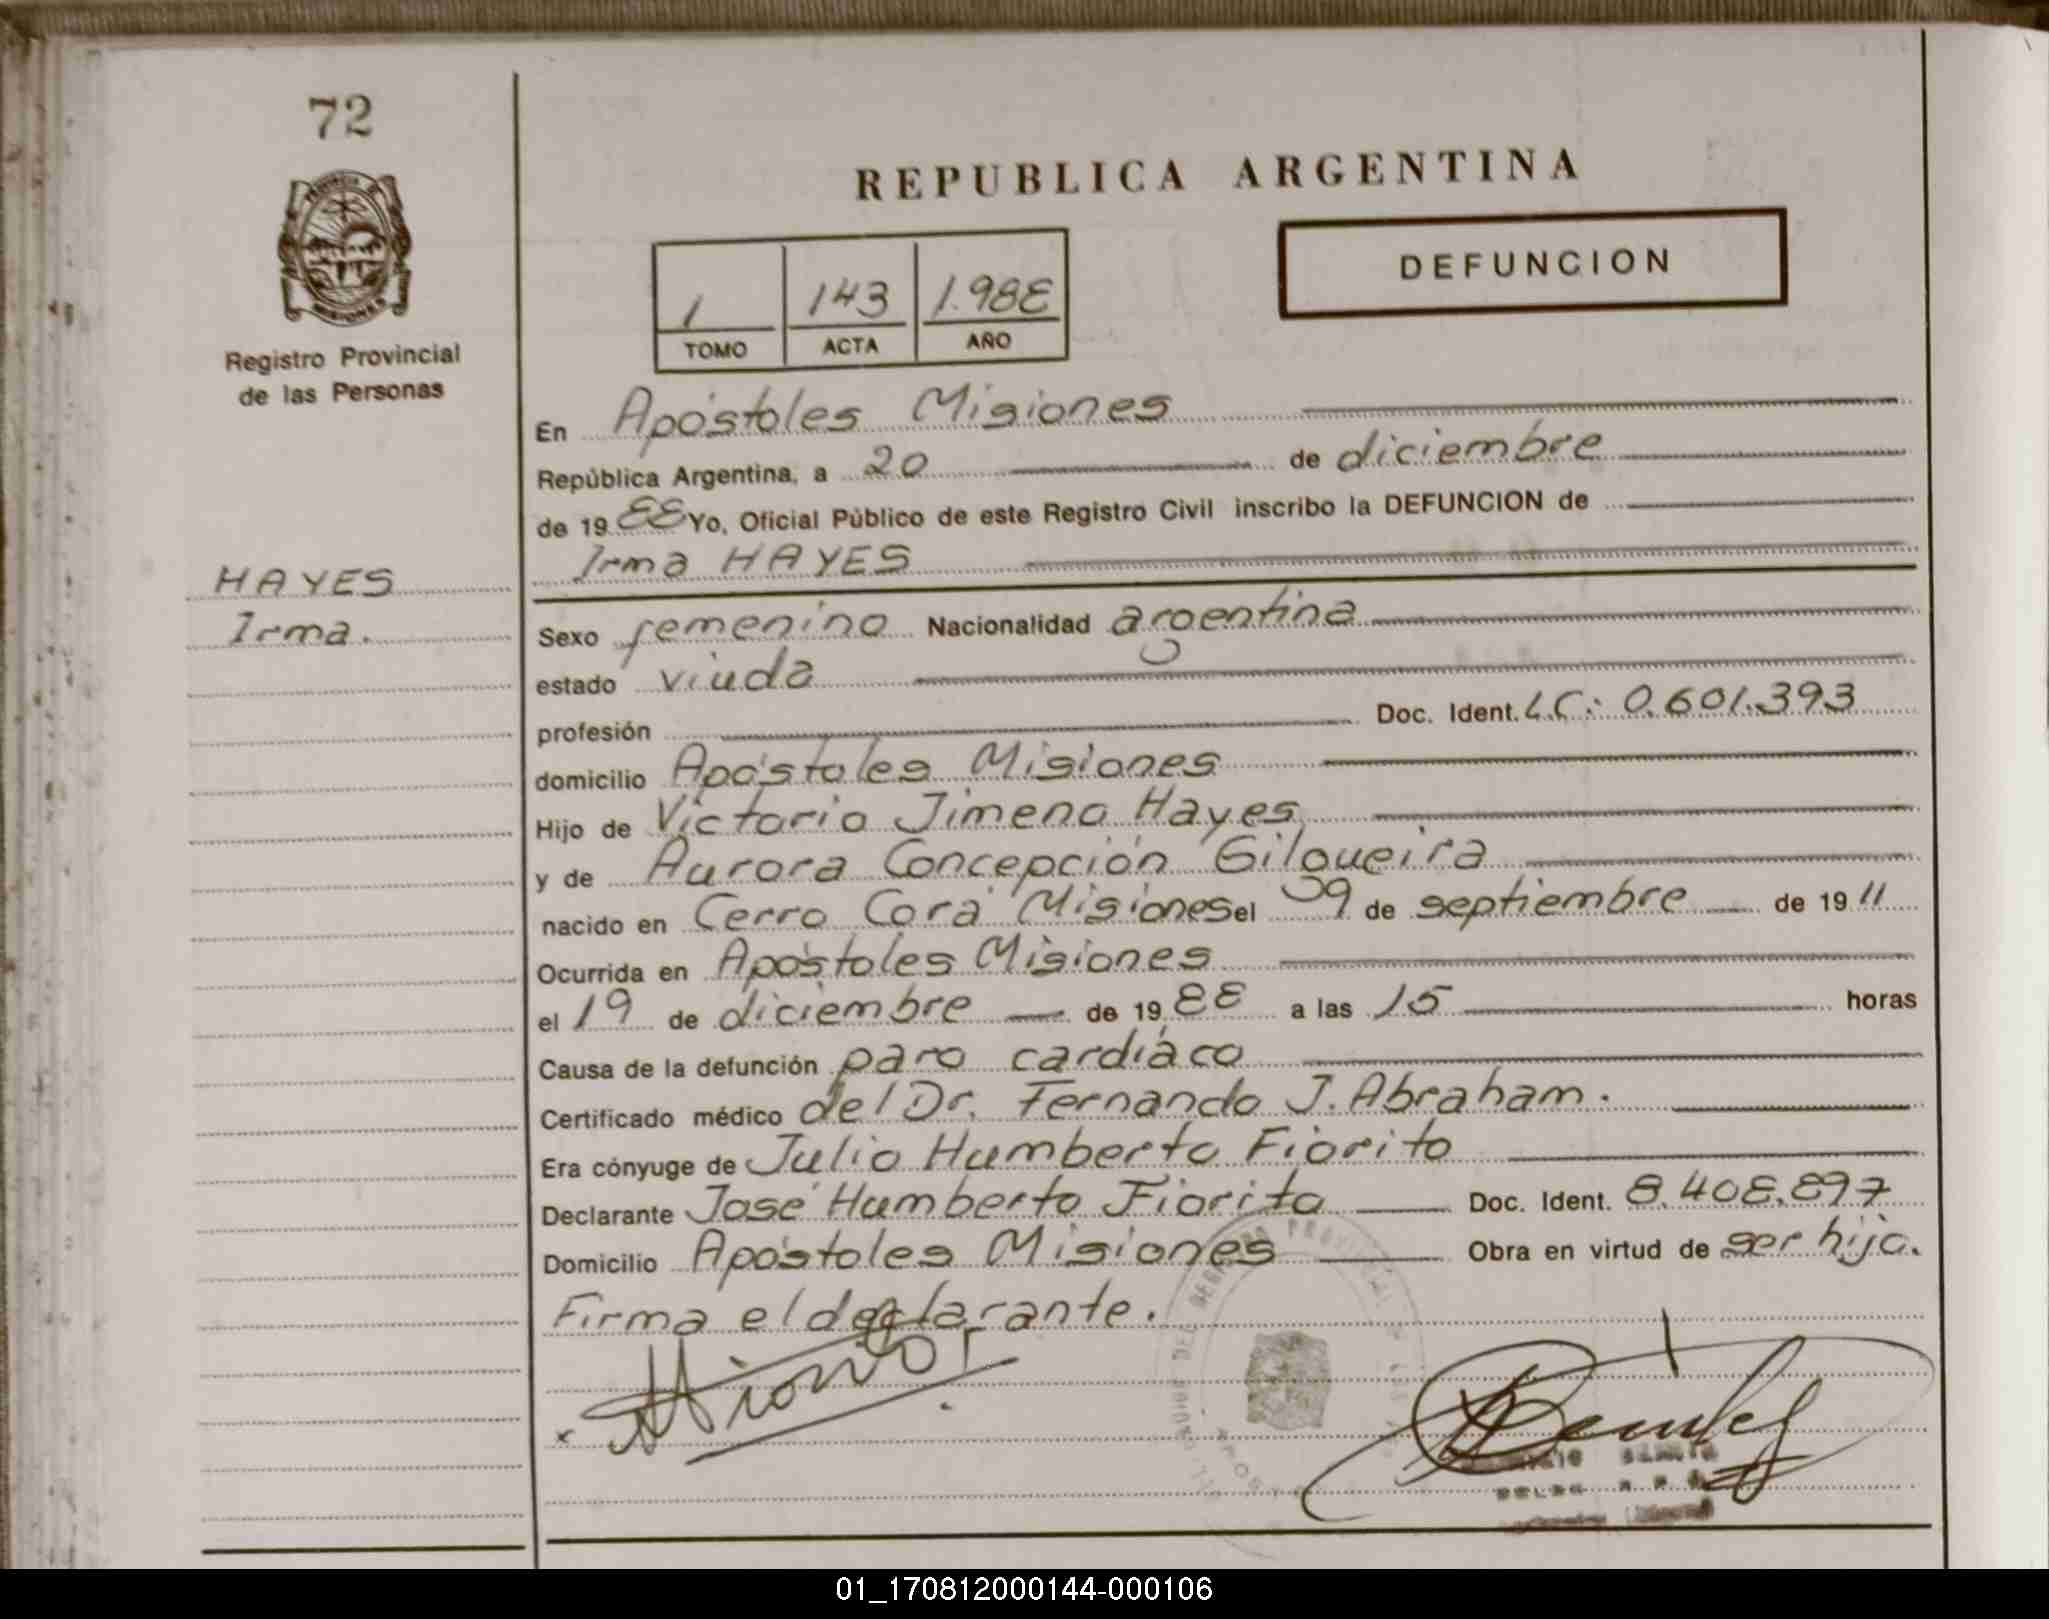 72
REPUBLICA ARGENTINA
DEFUNCION
1 143 1.988
TOMO ACTA AÑO
MISIONES
Registro Provincial
de las Personas
En Apóstoles Misiones
República Argentina, a 20 de diciembre
de 19 88 Yo, Oficial Público de este Registro Civil inscribo la DEFUNCION de
Irma HAYES
HAYES
Irma.
Sexo femenino Nacionalidad argentina
estado viuda
profesión Doc. Ident. L.C: 0.601.393
domicilio Apóstoles Misiones
Hijo de Victorio Jimeno Hayes
y de Aurora Concepción Gilgueira
nacido en Cerro Corá Misiones el 9 de septiembre de 19 11
Ocurrida en Apóstoles Misiones
el 19 de diciembre de 19 88 a las 15 horas
Causa de la defunción paro cardíaco
Certificado médico del Dr. Fernando J. Abraham.
Era cónyuge de Julio Humberto Fiorito
Declarante José Humberto Fiorito Doc. Ident. 8.408.897
Domicilio Apóstoles Misiones Obra en virtud de ser hijo.
Firma el declarante.
x
01_170812000144-000106